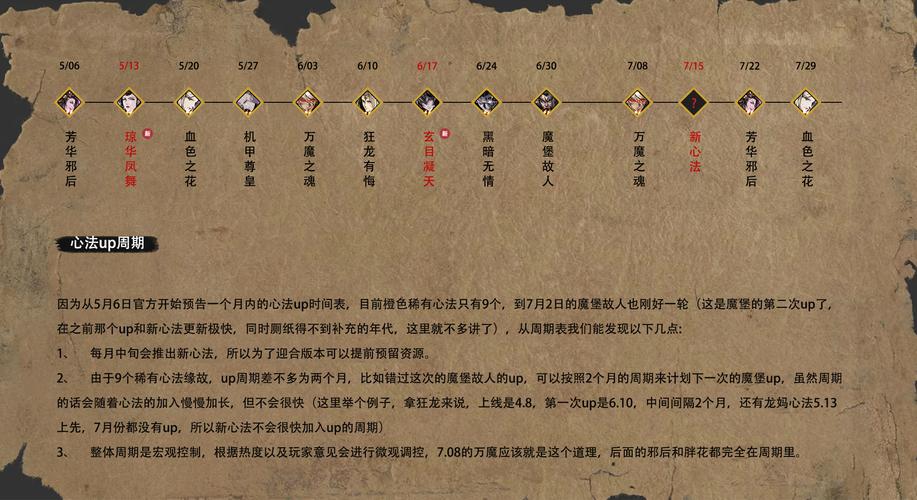 5/06 5/13 5/20 5/27 6/03 6/10 6/17 6/24 6/30 7/08 7/15 7/22 7/29
?
芳华邪后 琼华凤舞 新 血色之花 机甲尊皇 万魔之魂 狂龙有悔 玄目凝天 新 黑暗无情 魔堡故人 万魔之魂 新心法 芳华邪后 血色之花
心法up周期
因为从5月6日官方开始预告一个月内的心法up时间表，目前橙色稀有心法只有9个，到7月2日的魔堡故人也刚好一轮（这是魔堡的第二次up了，
在之前那个up和新心法更新极快，同时厕纸得不到补充的年代，这里就不多讲了），从周期表我们能发现以下几点:
1、 每月中旬会推出新心法，所以为了迎合版本可以提前预留资源。
2、 由于9个稀有心法缘故，up周期差不多为两个月，比如错过这次的魔堡故人的up，可以按照2个月的周期来计划下一次的魔堡up，虽然周期
的话会随着心法的加入慢慢加长，但不会很快（这里举个例子，拿狂龙来说，上线是4.8，第一次up是6.10，中间间隔2个月，还有龙妈心法5.13
上先，7月份都没有up，所以新心法不会很快加入up的周期）
3、 整体周期是宏观控制，根据热度以及玩家意见会进行微观调控，7.08的万魔应该就是这个道理，后面的邪后和胖花都完全在周期里。